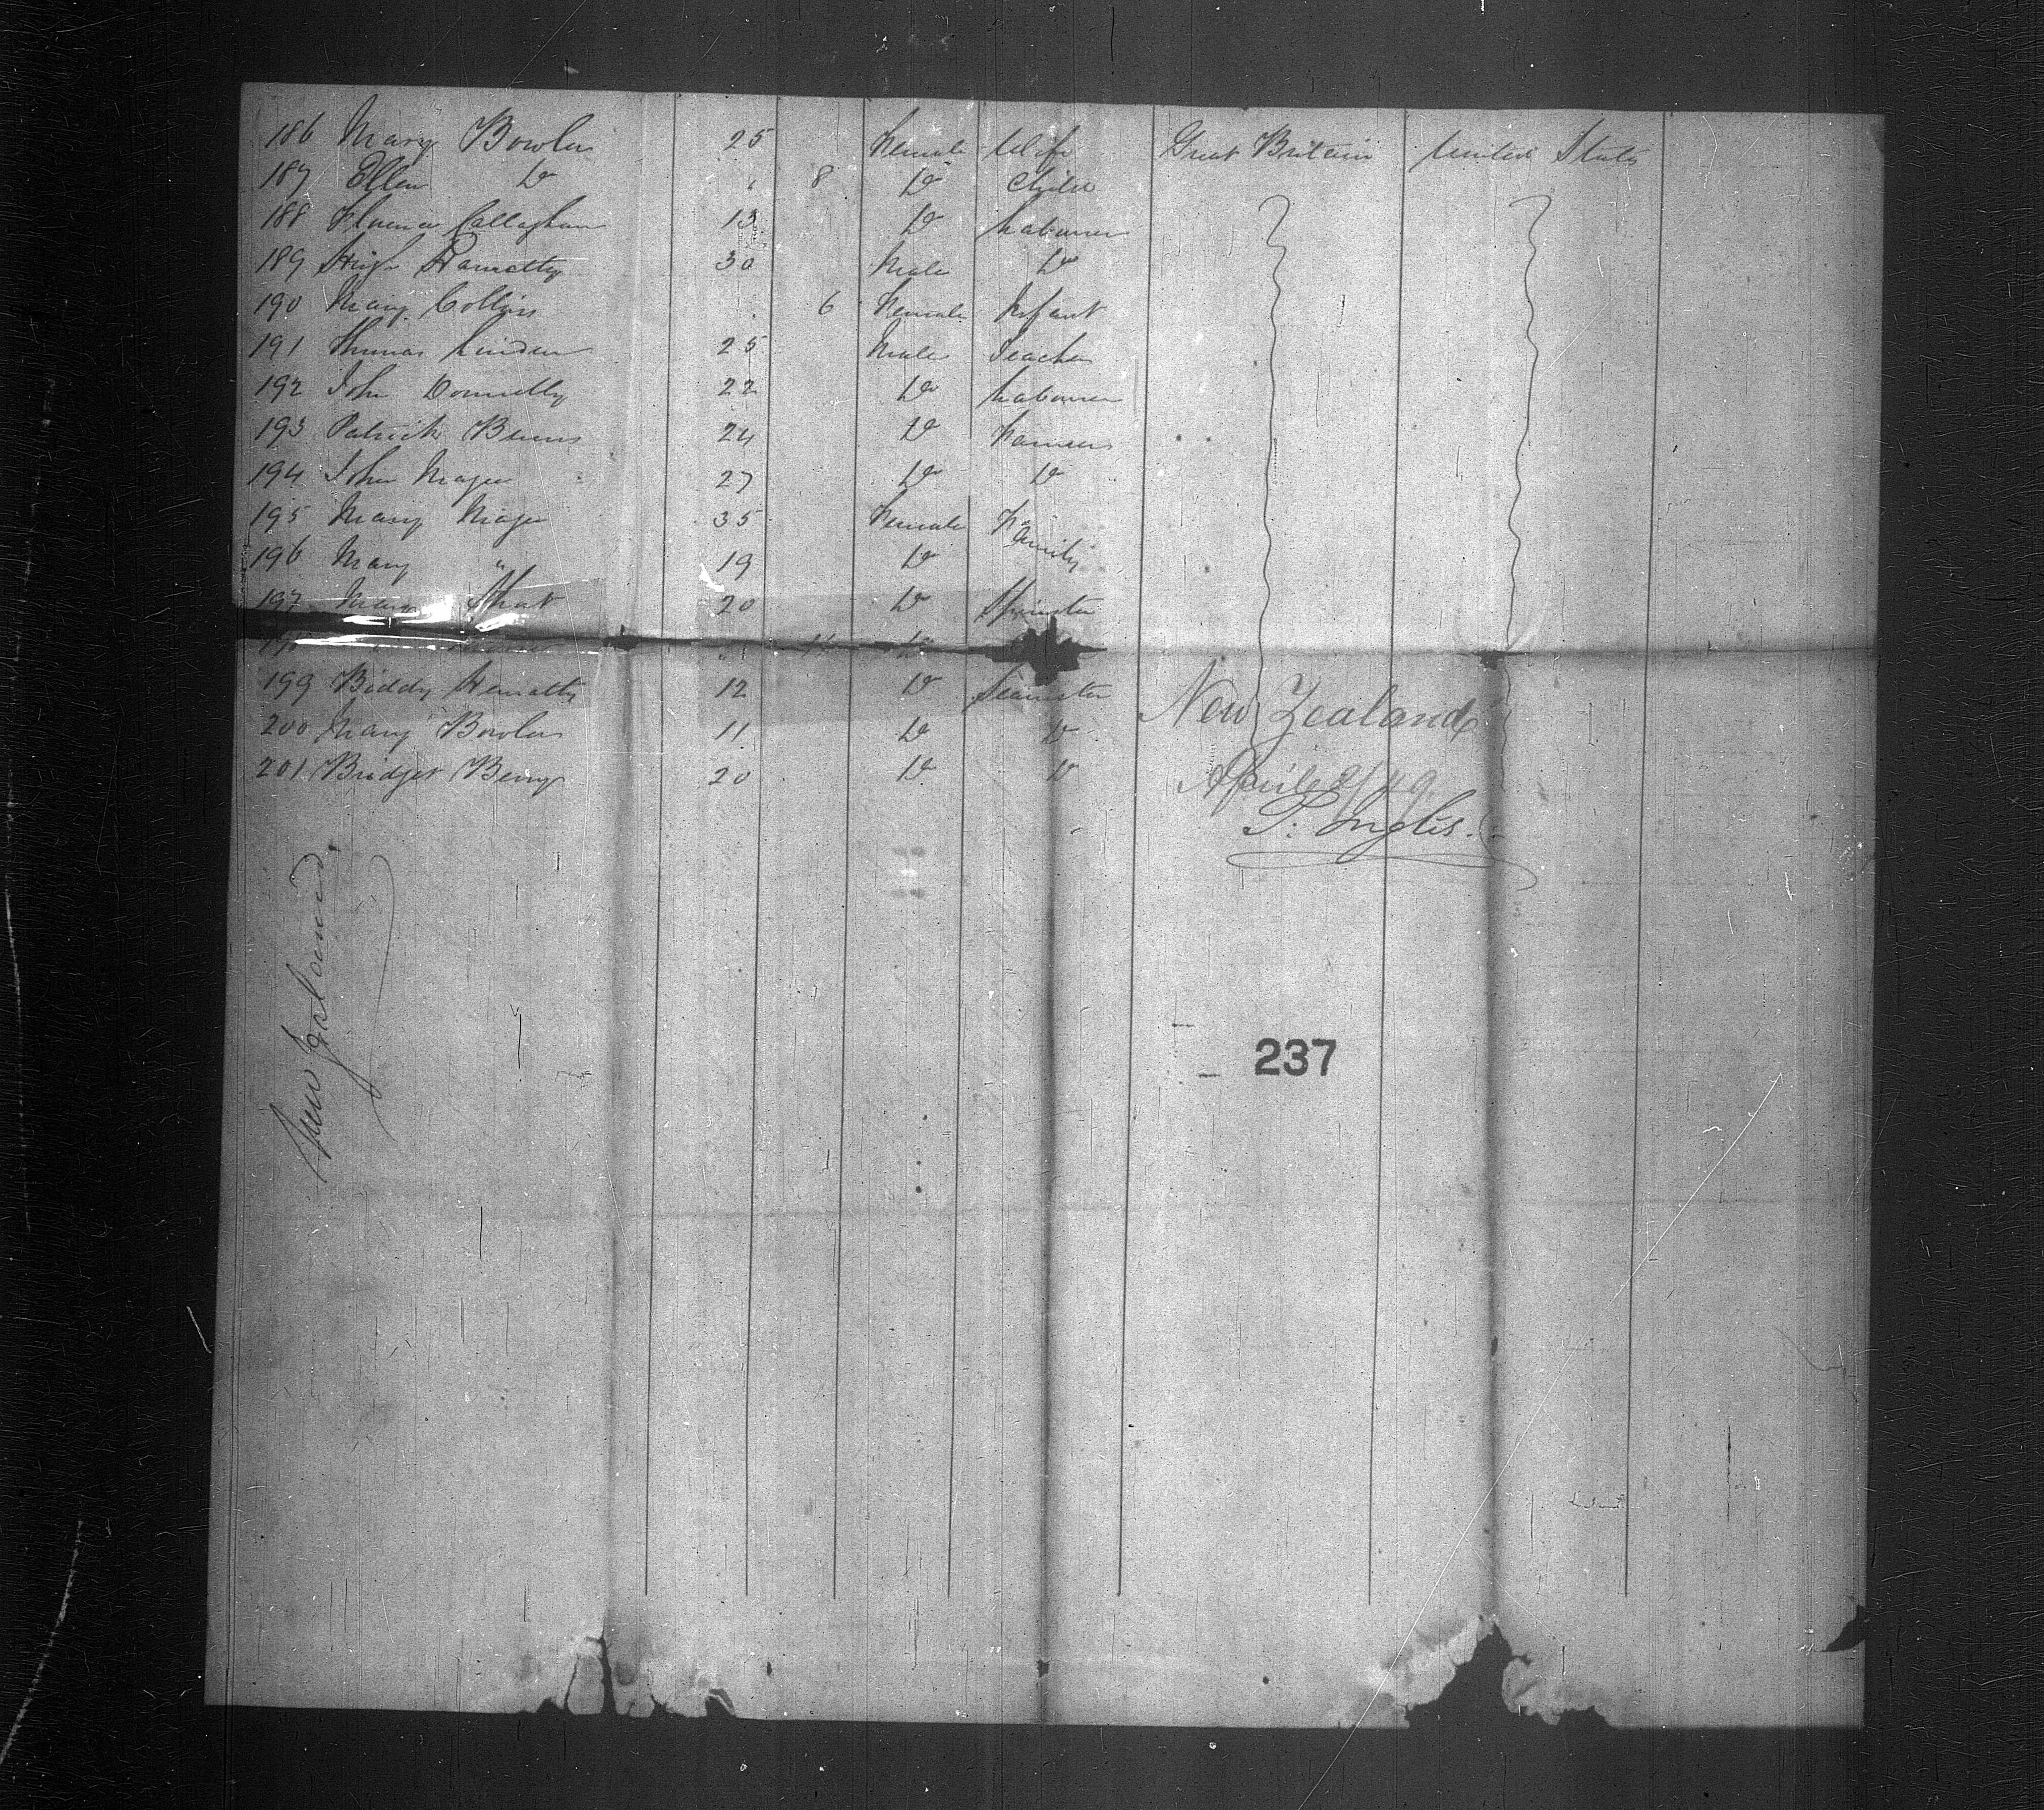 186 Mary Bowler 25 Female Wife Great Britain United States
187 Ellen Do 8 Do Child
188 Callaghan 13 Do Labourer
189 Hugh 30 Male Do
190 Mary Collins 6 Female Infant
191 Thomas Linden 25 Male Teacher
192 John Donnelly 22 Do Labourer
193 Patrick Burns 24 Do Farmer
194 John Magee 27 Do Do
195 Mary Magee 35 Female Family
196 Mary " 19 Do
197 Mary 20 Do Spinster
199 Biddy 12 Do Seamster
200 Mary Bowler 11 Do Do
201 Bridget Berry 20 Do Do
New Zealand
April 2/49
P. Inglis.
New Zealand.
237